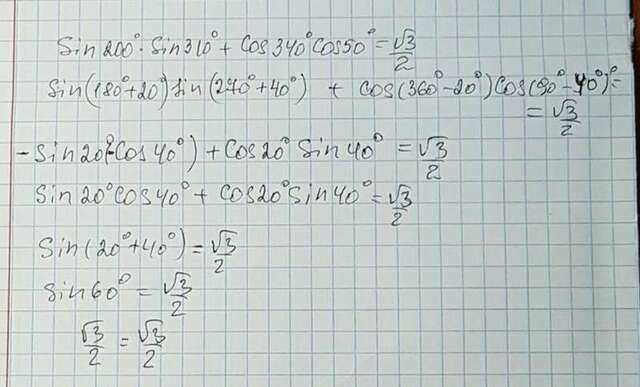 Sin 200° · Sin 310° + Cos 340° Cos 50° = √3/2
Sin(180°+20°)Sin(270°+40°) + Cos(360°-20°)Cos(90°-40°)=
= √3/2
-Sin 20°(-Cos 40°) + Cos 20° Sin 40° = √3/2
Sin 20° Cos 40° + Cos 20° Sin 40° = √3/2
Sin(20°+40°) = √3/2
Sin 60° = √3/2
√3/2 = √3/2